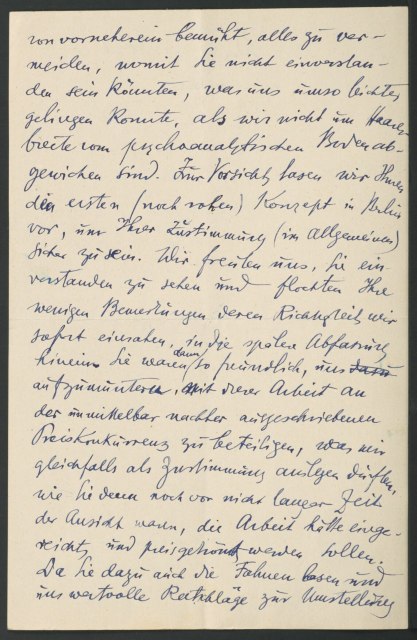 von vorneherein bemüht, alles zu ver-
meiden, womit Sie nicht einverstan-
den sein könnten, was uns umso leichter
gelingen konnte, als wir nicht um Haares-
breite vom psychoanalytischen Boden ab-
gewichen sind. Zur Vorsicht lasen wir Ihnen
den ersten (noch rohen) Konzept in Berlin
vor, um Ihrer Zustimmung (im allgemeinen)
sicher zu sein. Wir freuten uns, Sie ein-
verstanden zu sehen und flochten Ihre
wenigen Bemerkungen deren Richtigkeit wir
sofort einsahen, in die spätere Abfassung
hinein. Sie waren dann so freundlich, uns dazu
aufzumuntern, mit dieser Arbeit an
der unmittelbar nachher ausgeschriebenen
Preiskonkurrenz zu beteiligen, was wir
gleichfalls als Zustimmung auslegen durften,
wie Sie denn noch vor nicht langer Zeit
der Ansicht waren, die Arbeit hätte einge-
reicht und preisgekrönt werden sollen.
Da Sie dazu auch die Fahnen lasen und
uns wertvolle Ratschläge zur Umstellung